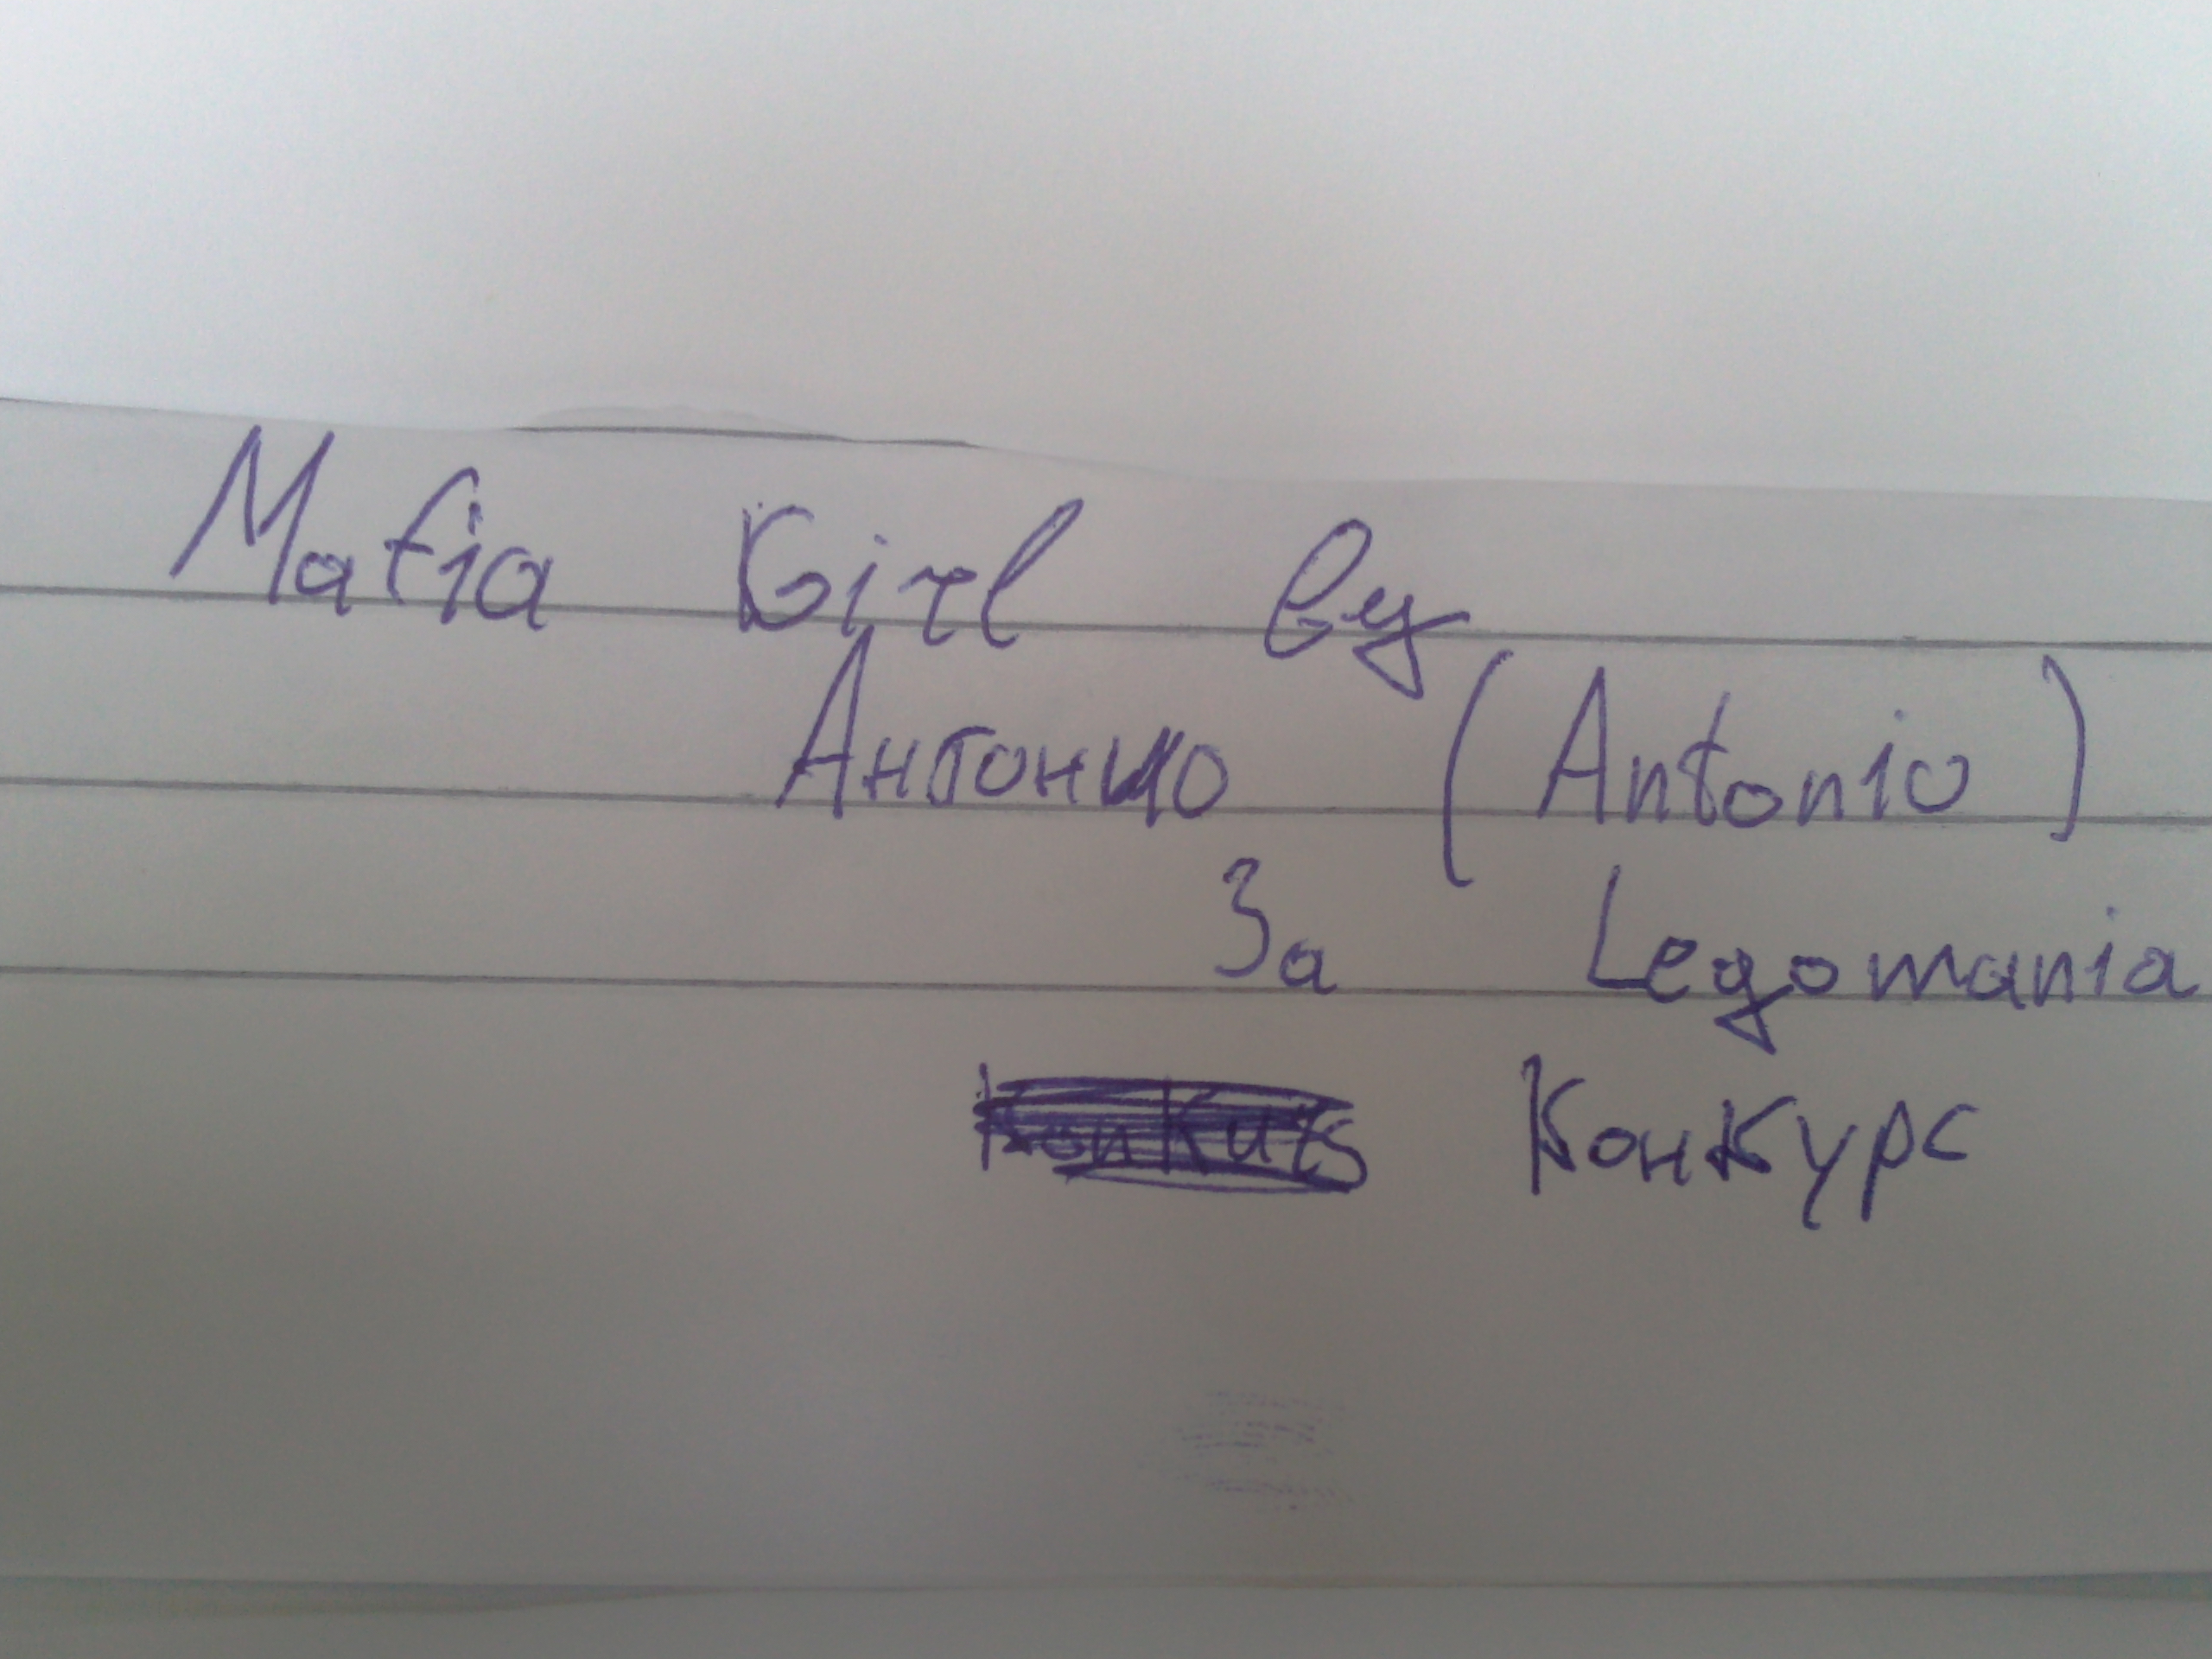 Mafia Girl by
Антонио (Antonio)
За Legomania
Конкурс